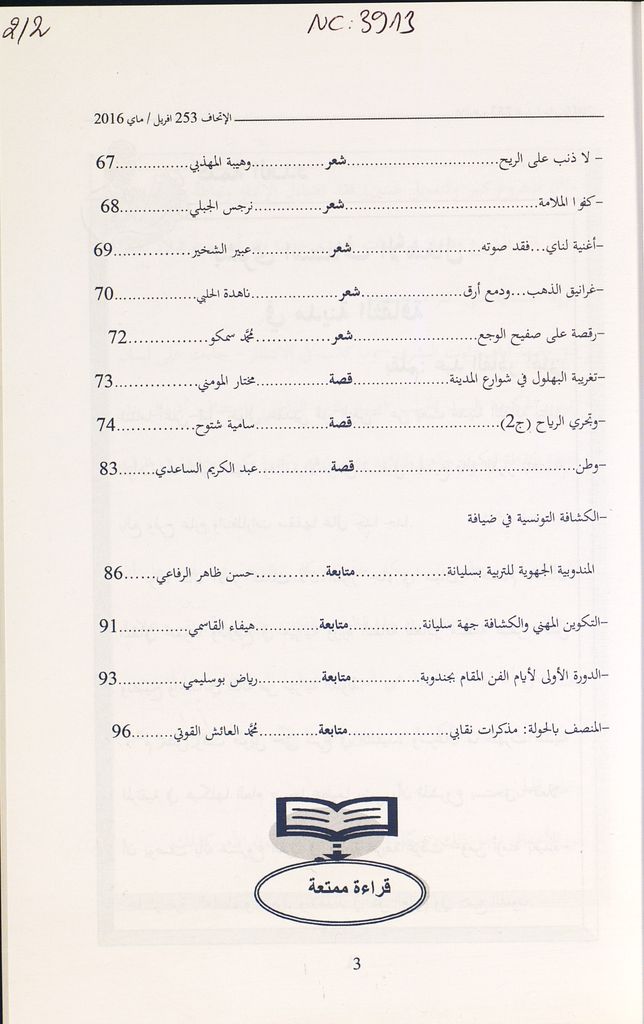 2/2
NC: 3913
الإتحاف 253 افريل / ماي 2016
- لا ذنب على الريح..............................شعر...................وهيبة المهذبي...............67
-كفوا الملامة............................................شعر....................نرجس الجبلي...............68
-أغنية لناي...فقد صوته..........................شعر....................عبير الشخير.................69
-غرانيق الذهب...ودمع أرق.....................شعر....................ناهدة الحلبي.................70
-رقصة على صفيح الوجع.........................شعر....................محمد سمكو.................72
-تغريبة البهلول في شوارع المدينة.......................قصة..................مختار المومني...............73
-وتجري الرياح (ج2)................................قصة.................سامية شتوح.................74
-وطن..................................................قصة.................عبد الكريم الساعدي........83
-الكشافة التونسية في ضيافة
المندوبية الجهوية للتربية بسليانة....................متابعة................حسن ظاهر الرفاعي......86
-التكوين المهني والكشافة جهة سليانة.................متابعة................هيفاء القاسمي...............91
-الدورة الأولى لأيام الفن المقام بجندوبة................متابعة................رياض بوسليمي.............93
-المنصف بالحولة: مذكرات نقابي.......................متابعة................محمد العائش القوتي.........96
قراءة ممتعة
3